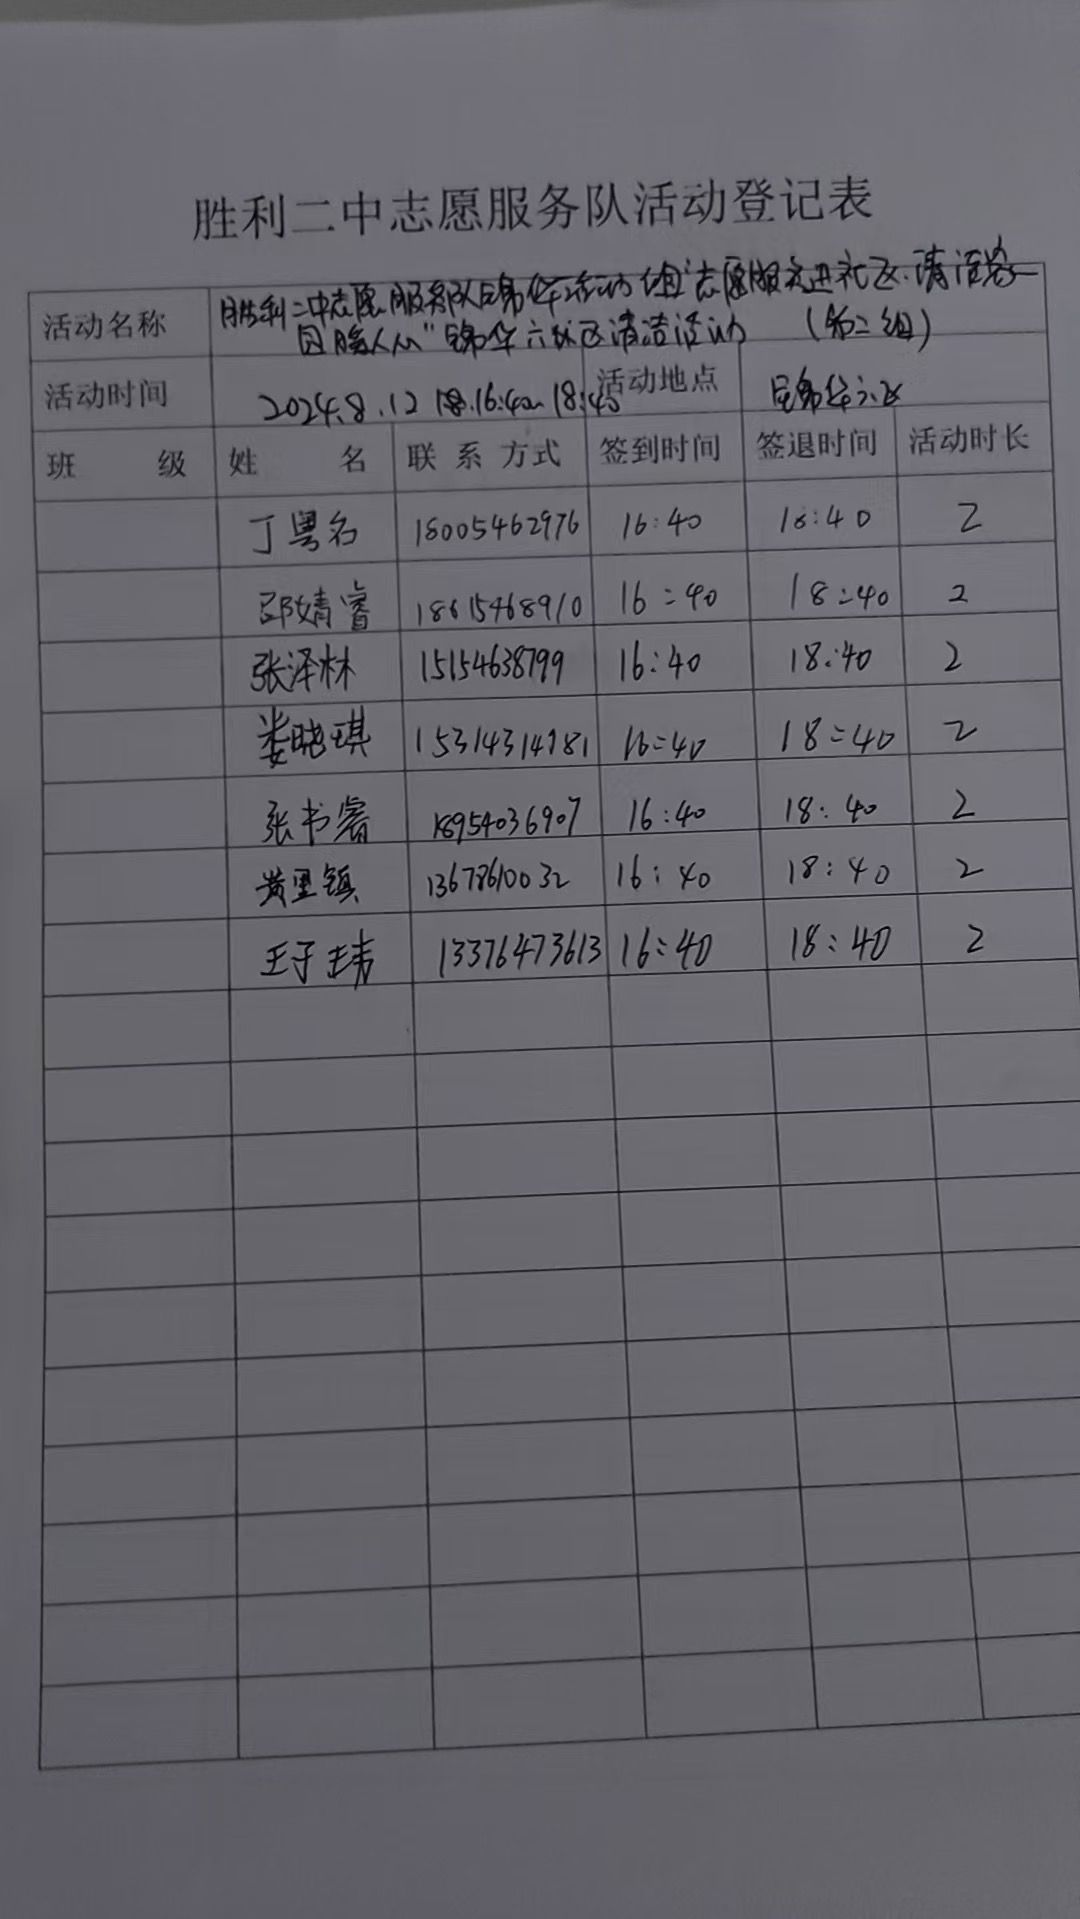 胜利二中志愿服务队活动登记表
活动名称 胜利二中志愿服务队锦华活动组"志愿服务进社区.清洁家
园暖人心"锦华六社区清洁活动 (第二组)
活动时间 2024.8.12 16:40 18:40 活动地点 锦华六区
班 级 姓 名 联系方式 签到时间 签退时间 活动时长
丁粤名 18005462976 16:40 18:40 2
邵婧睿 18615468910 16:40 18:40 2
张泽林 15154638799 16:40 18:40 2
娄晓琪 15314314781 16:40 18:40 2
张书睿 18954036907 16:40 18:40 2
黄里镇 13678610032 16:40 18:40 2
王子玮 13376473613 16:40 18:40 2